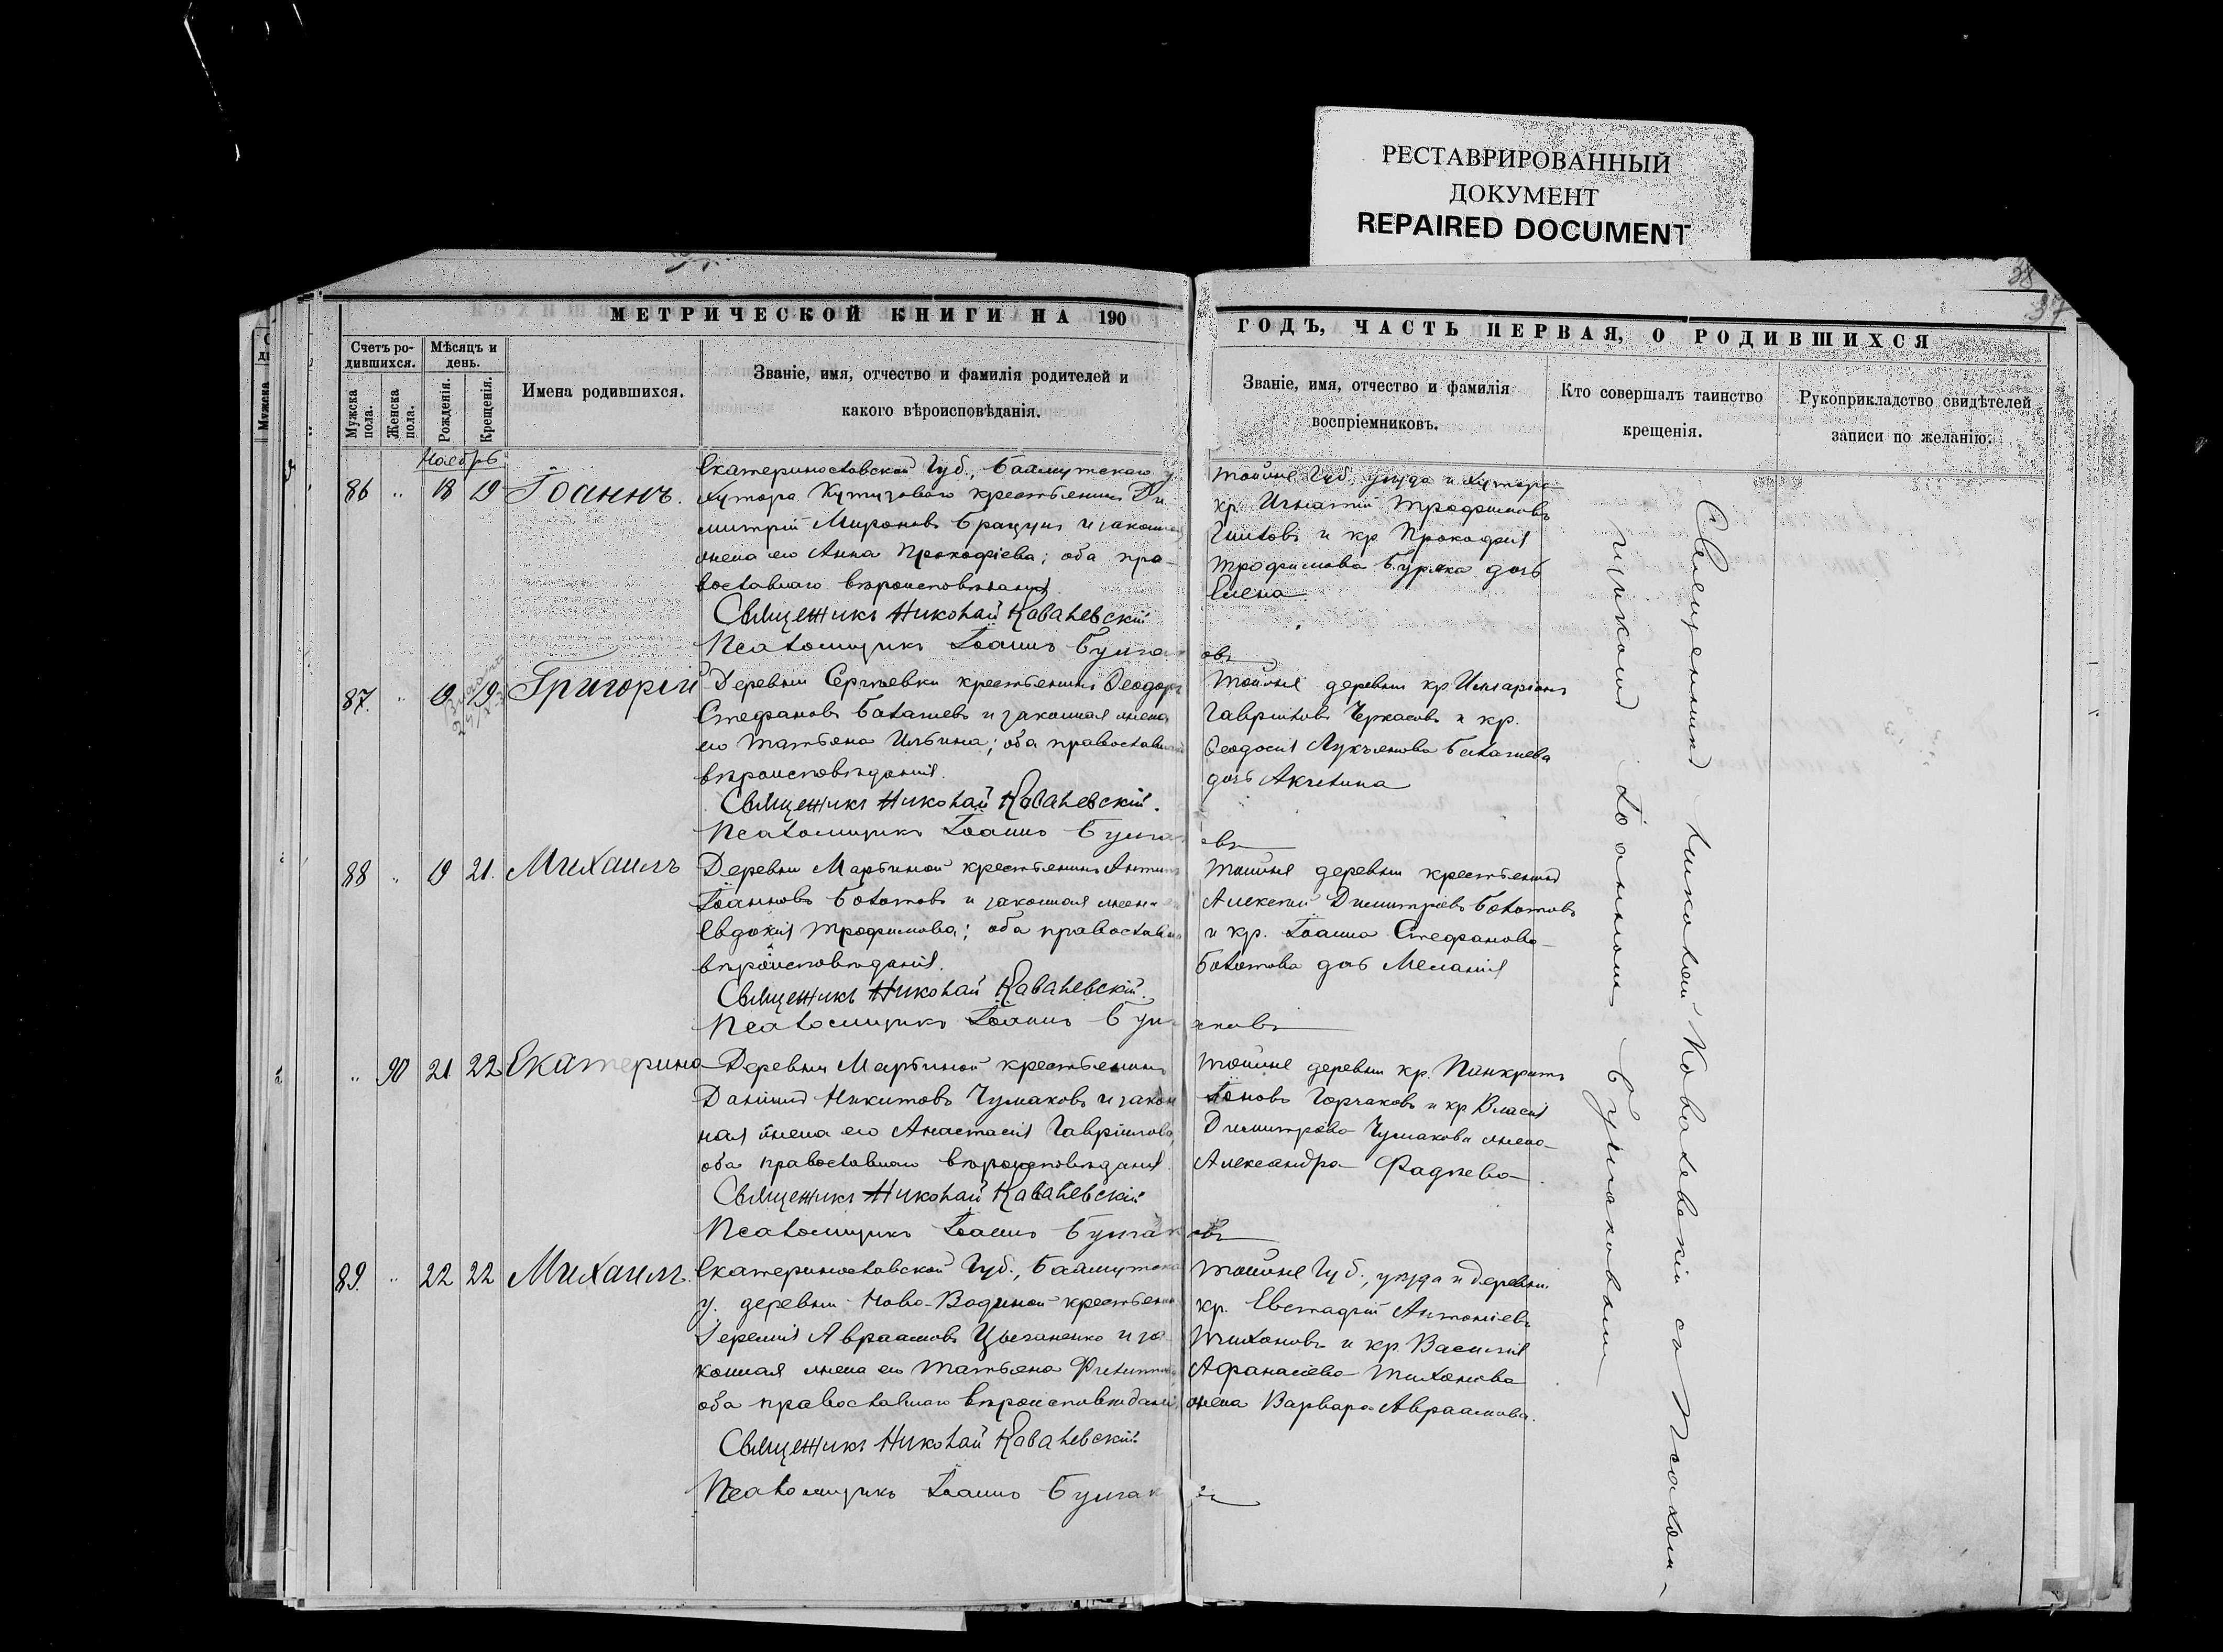 РЕСТАВРИРОВАННЫЙ
ДОКУМЕНТ
REPAIRED DOCUMENT
38
37
МЕТРИЧЕСКОЙ КНИГИ НА 190
ГОДЪ, ЧАСТЬ ПЕРВАЯ, О РОДИВШИХСЯ
Счетъ ро-
дившихся.
Мужска
пола.
Женска
пола.
Мѣсяцъ и
день.
Рожденія.
Крещенія.
Имена родившихся.
Званіе, имя, отчество и фамилія родителей и
какого вѣроисповѣданія.
Званіе, имя, отчество и фамилія
воспріемниковъ.
Кто совершалъ таинство
крещенія.
Рукоприкладство свидѣтелей
записи по желанію.
Ноябрь
86 " 18 19 Іоаннъ.
Екатеринославской Губ., Бахмутскаго у
хутора крестьянинъ Ди
митрій Мироновъ и законная
жена его Анна Прокофіева; оба пра-
вославнаго вѣроисповѣданія
Священникъ Николай Ковалевскій
Псаломщикъ Іоаннъ Булгаковъ
тойже Губ., уѣзда и хутора
кр. Игнатій Трофимовъ
и кр. Прокофія
Трофимова дочь
Елена
87. " 19 19 Григорій
Деревни Сергѣевки крестьянинъ Ѳеодоръ
Стефановъ Балашевъ и законная жена
его Татьяна Ильина; оба православнаго
вѣроисповѣданія.
Священникъ Николай Ковалевскій.
Псаломщикъ Іоаннъ Булгаковъ
Тойже деревни кр. Иларіонъ
Гавриловъ Черкасовъ и кр.
Ѳеодосія Лукьянова Балашева
дочь Акилина
88 " 19 21. Михаилъ
Деревни Марьиной крестьянинъ
Іоанновъ Болотовъ и законная жена
Евдокія Трофимова; оба православнаго
вѣроисповѣданія.
Священникъ Николай Ковалевскій.
Псаломщикъ Іоаннъ Булгаковъ
Тойже деревни крестьянинъ
Алексій Димитріевъ Болотовъ
и кр. Іоанна Стефанова
Болотова дочь Меланія
" 90 21 22 Екатерина
Деревни Марьиной крестьянинъ
Даніилъ Никитовъ Чумаковъ и закон
ная жена его Анастасія Гавріилова,
оба православнаго вѣроисповѣданія.
Священникъ Николай Ковалевскій
Псаломщикъ Іоаннъ Булгаковъ
Тойже деревни кр. Панкратъ
Іоновъ Горчаковъ и кр. Власія
Димитріева Чумакова жена
Александра Фадѣева
89. " 22 22 Михаилъ.
Екатеринославской Губ., Бахмутска
у. деревни Ново-Водяной крестьянинъ
Іеремія Авраамовъ Цыганенко и за-
конная жена его Татьяна
оба православнаго вѣроисповѣданія
Священникъ Николай Ковалевскій
Псаломщикъ Іоаннъ Булгаковъ
Тойже Губ., уѣзда и деревни
кр. Евстафій Антоніевъ
Тихоновъ и кр. Василія
Афанасіева Тихонова
жена Варвара Авраамова.
Священникъ Николай Ковалевскій съ Псалом-
щикомъ Іоанномъ Булгаковымъ